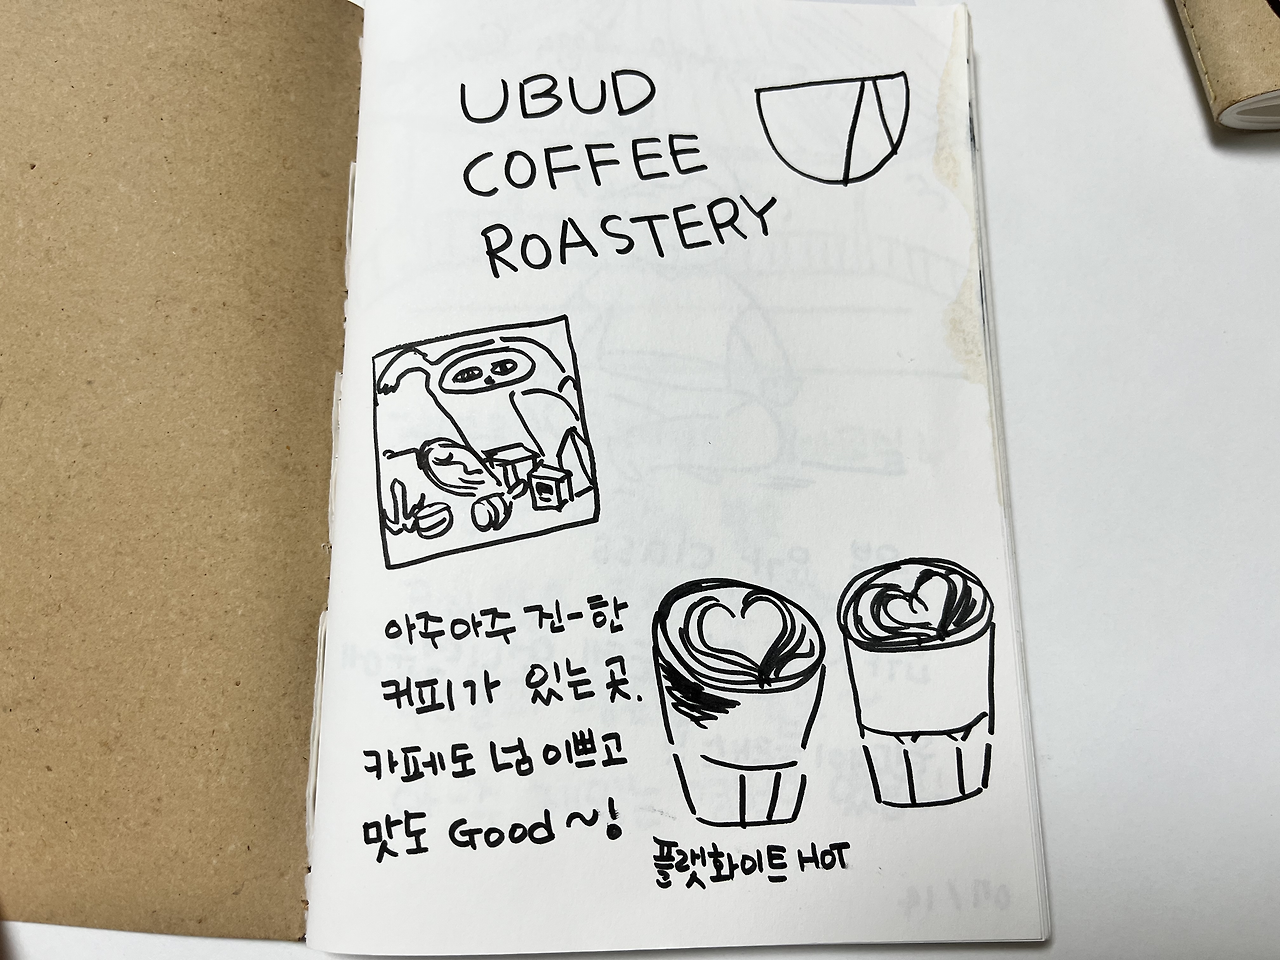 UBUD
COFFEE
ROASTERY
아주아주 진-한
커피가 있는 곳.
카페도 넘 이쁘고
맛도 Good ~!
플랫화이트 HOT